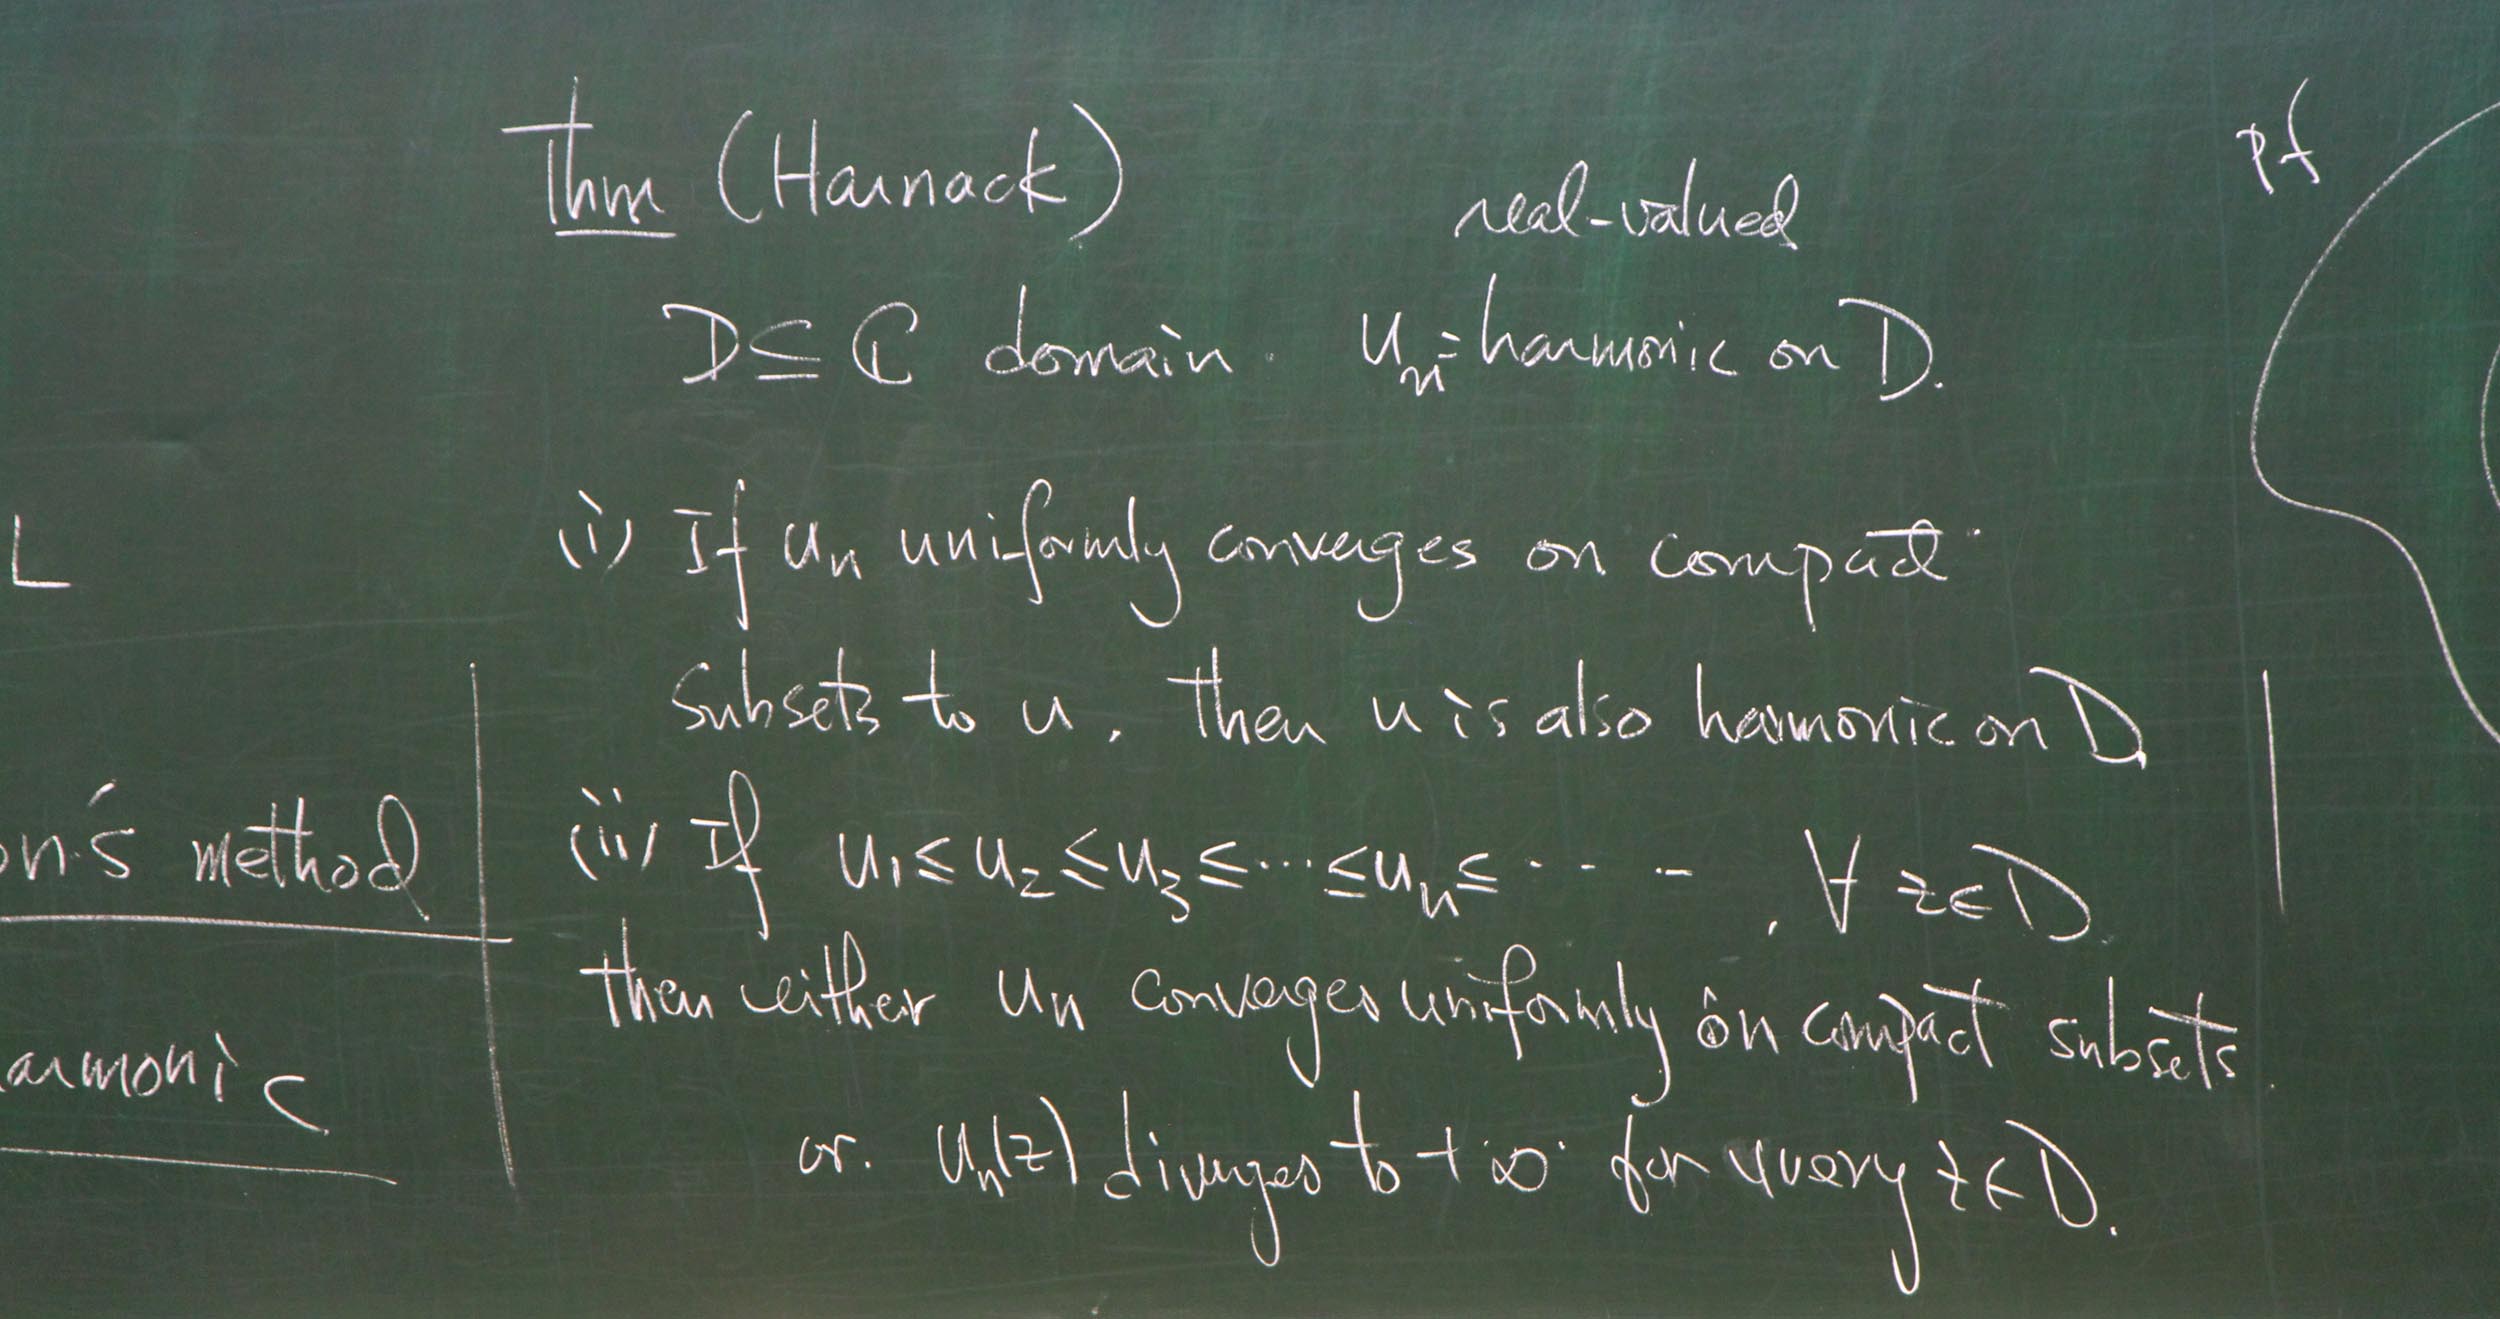 Thm (Harnack)
real-valued
D ⊆ ℂ domain. uₙ = harmonic on D.
(i) If uₙ uniformly converges on compact
subsets to u, then u is also harmonic on D.
(ii) If u₁ ≤ u₂ ≤ u₃ ≤ ··· ≤ uₙ ≤ ···· , ∀ z ∈ D.
then either uₙ converges uniformly on compact subsets.
or. uₙ(z) diverges to +∞ for every z ∈ D.
pf
L
on's method
armonic